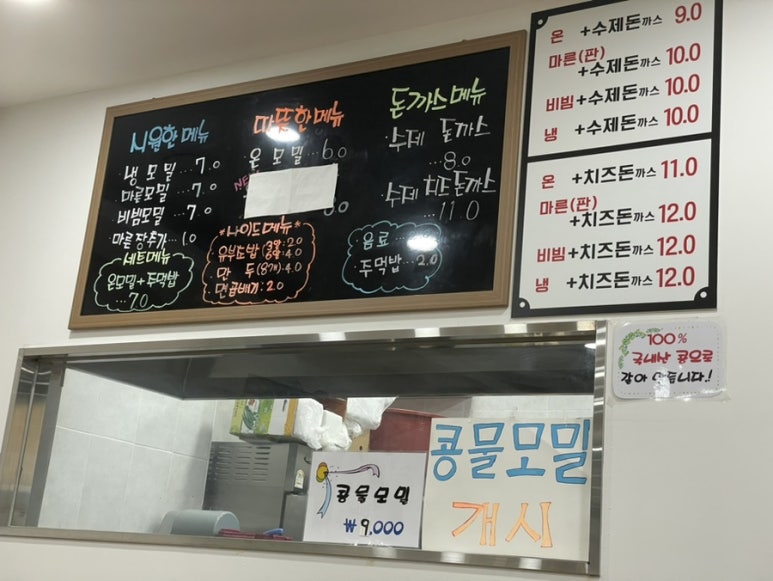 시원한 메뉴
냉모밀...7.0
마른모밀...7.0
비빔모밀...7.0
마른장추가...1.0
세트메뉴
온모밀+주먹밥
...7.0
따뜻한메뉴
온모밀...6.0
*사이드메뉴*
유부초밥(3알:2.0
6알:4.0
만두(8개):4.0
면곱배기:2.0
돈까스메뉴
수제 돈까스
...8.0
수제 치즈돈까스
...11.0
음료
주먹밥...2.0
온 +수제돈까스 9.0
마른(판)
+수제돈까스 10.0
비빔+수제돈까스 10.0
냉 +수제돈까스 10.0
온 +치즈돈까스 11.0
마른(판)
+치즈돈까스 12.0
비빔+치즈돈까스 12.0
냉 +치즈돈까스 12.0
100%
국내산 콩으로
갈아
콩물모밀
₩9,000
콩물모밀
개시